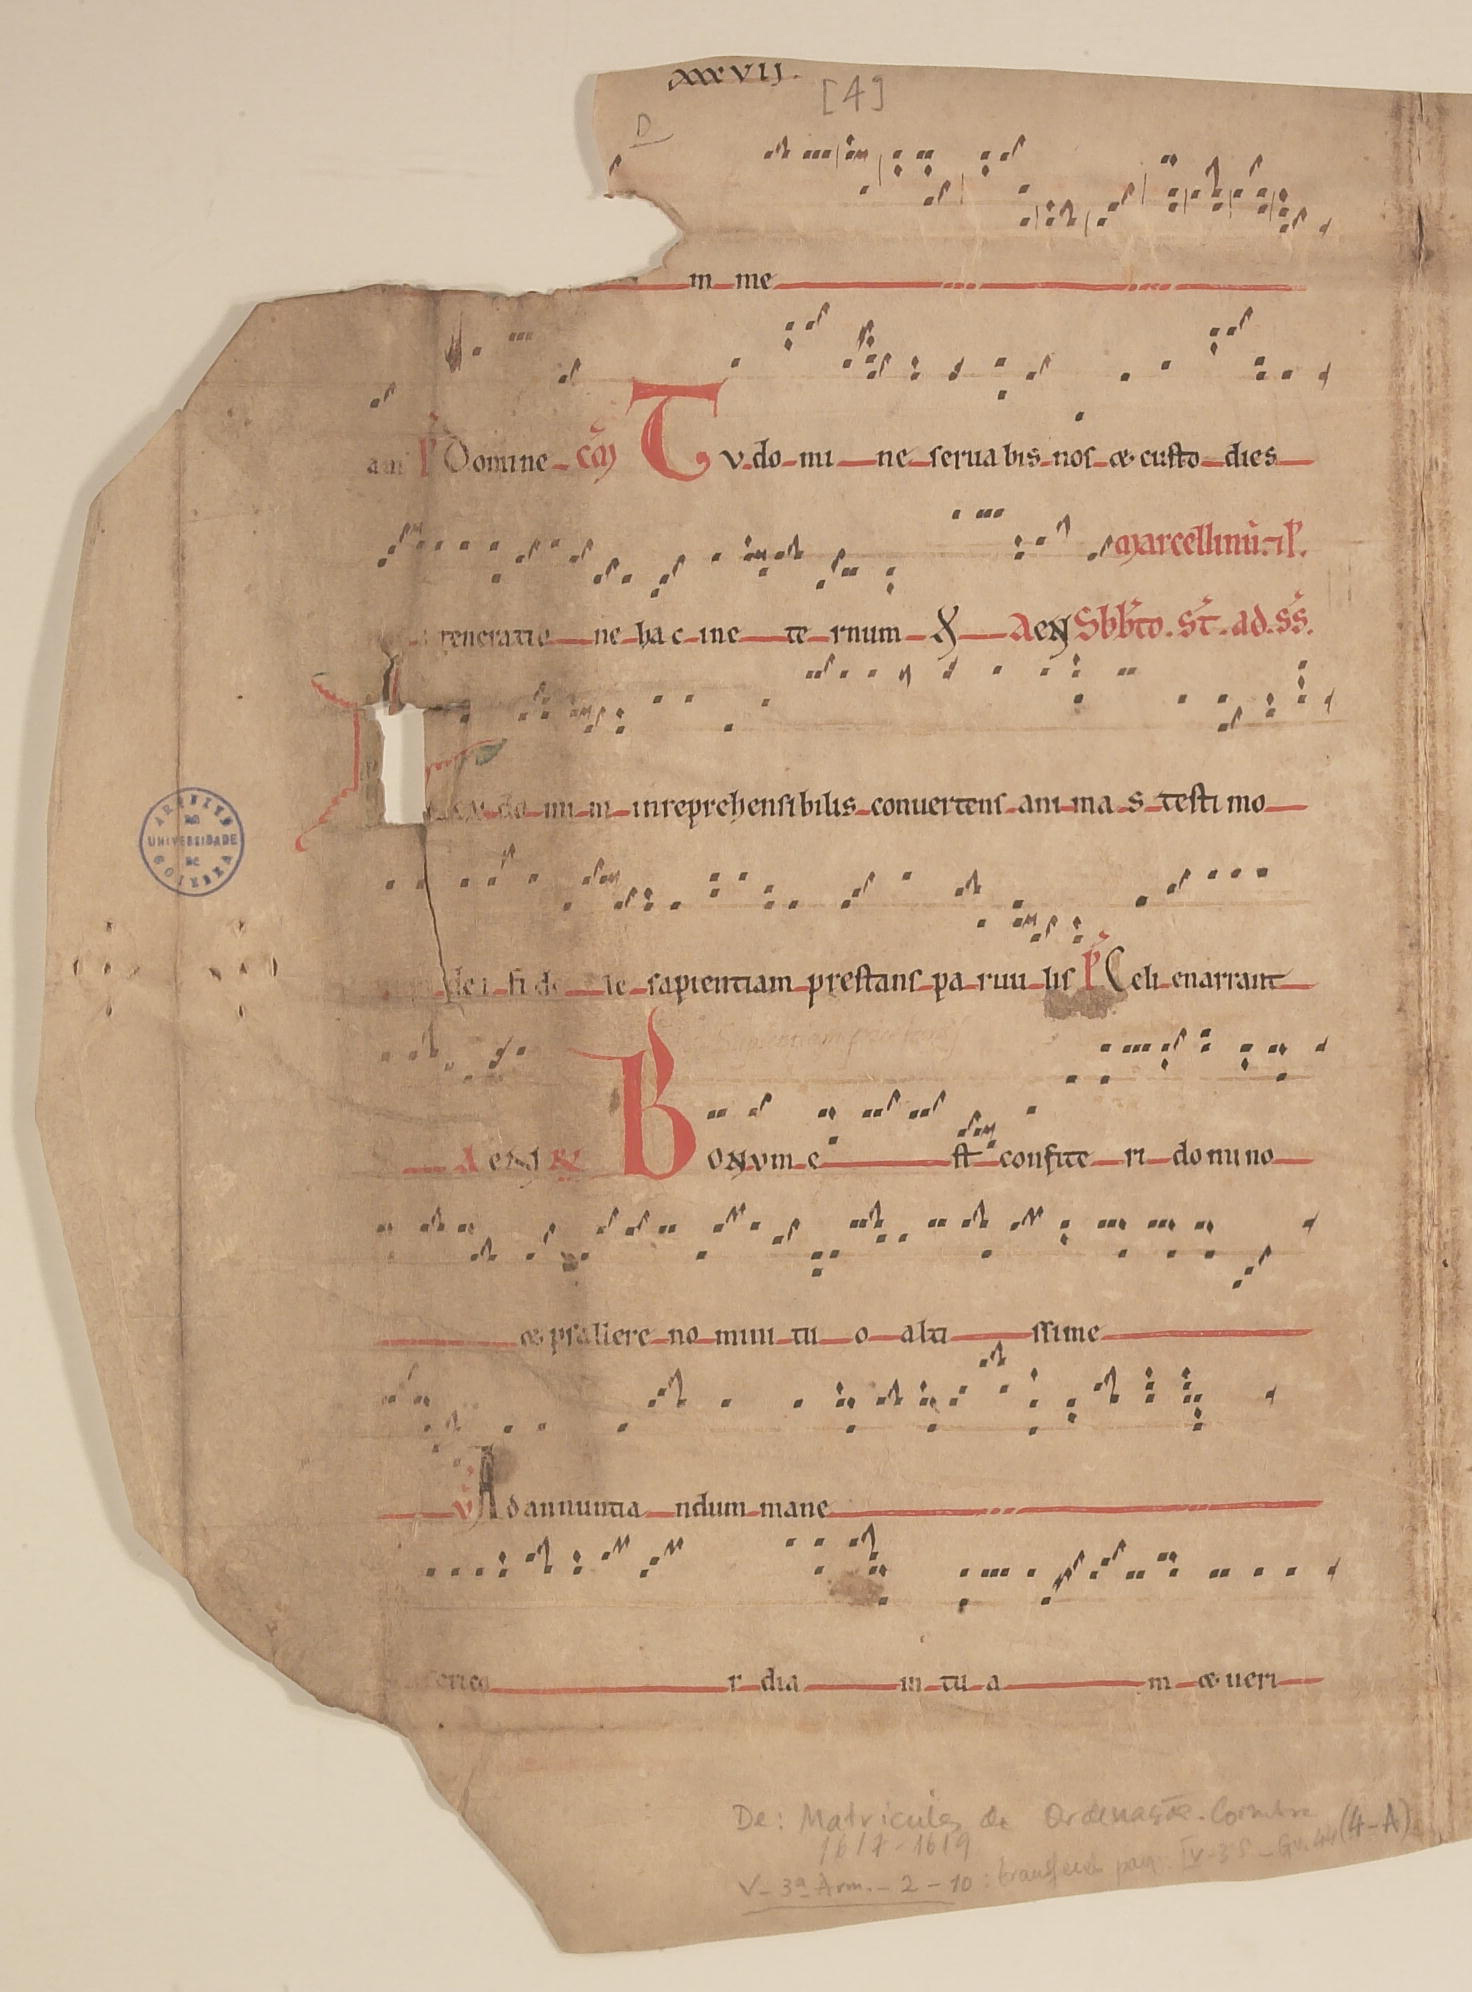 xxxvij.
[4]
D
m me
am P Domine cō Tu domi ne seruabis nos & custo dies
marcellini ⁊ P.
generatio ne hac in e te rnum X AeN Sbb̄to. S̄t. ad. S̄s.
do mi ni inreprehensibilis conuertens ani ma s testi mo
dei fide le sapientiam prestans pa ruu lis P Celi enarrant
AeN Bonum e st confite ri domino
& psallere no mini tu o alti ssime
V Ad annuntia ndum mane
erico r dia m tu a m & ueri
ARQUIVO DA UNIVERSIDADE DE COIMBRA
De: Matriculas de Ordenação. Coimbra
1617-1619 (4-A)
V- 3ª Arm. - 2 - 10 :